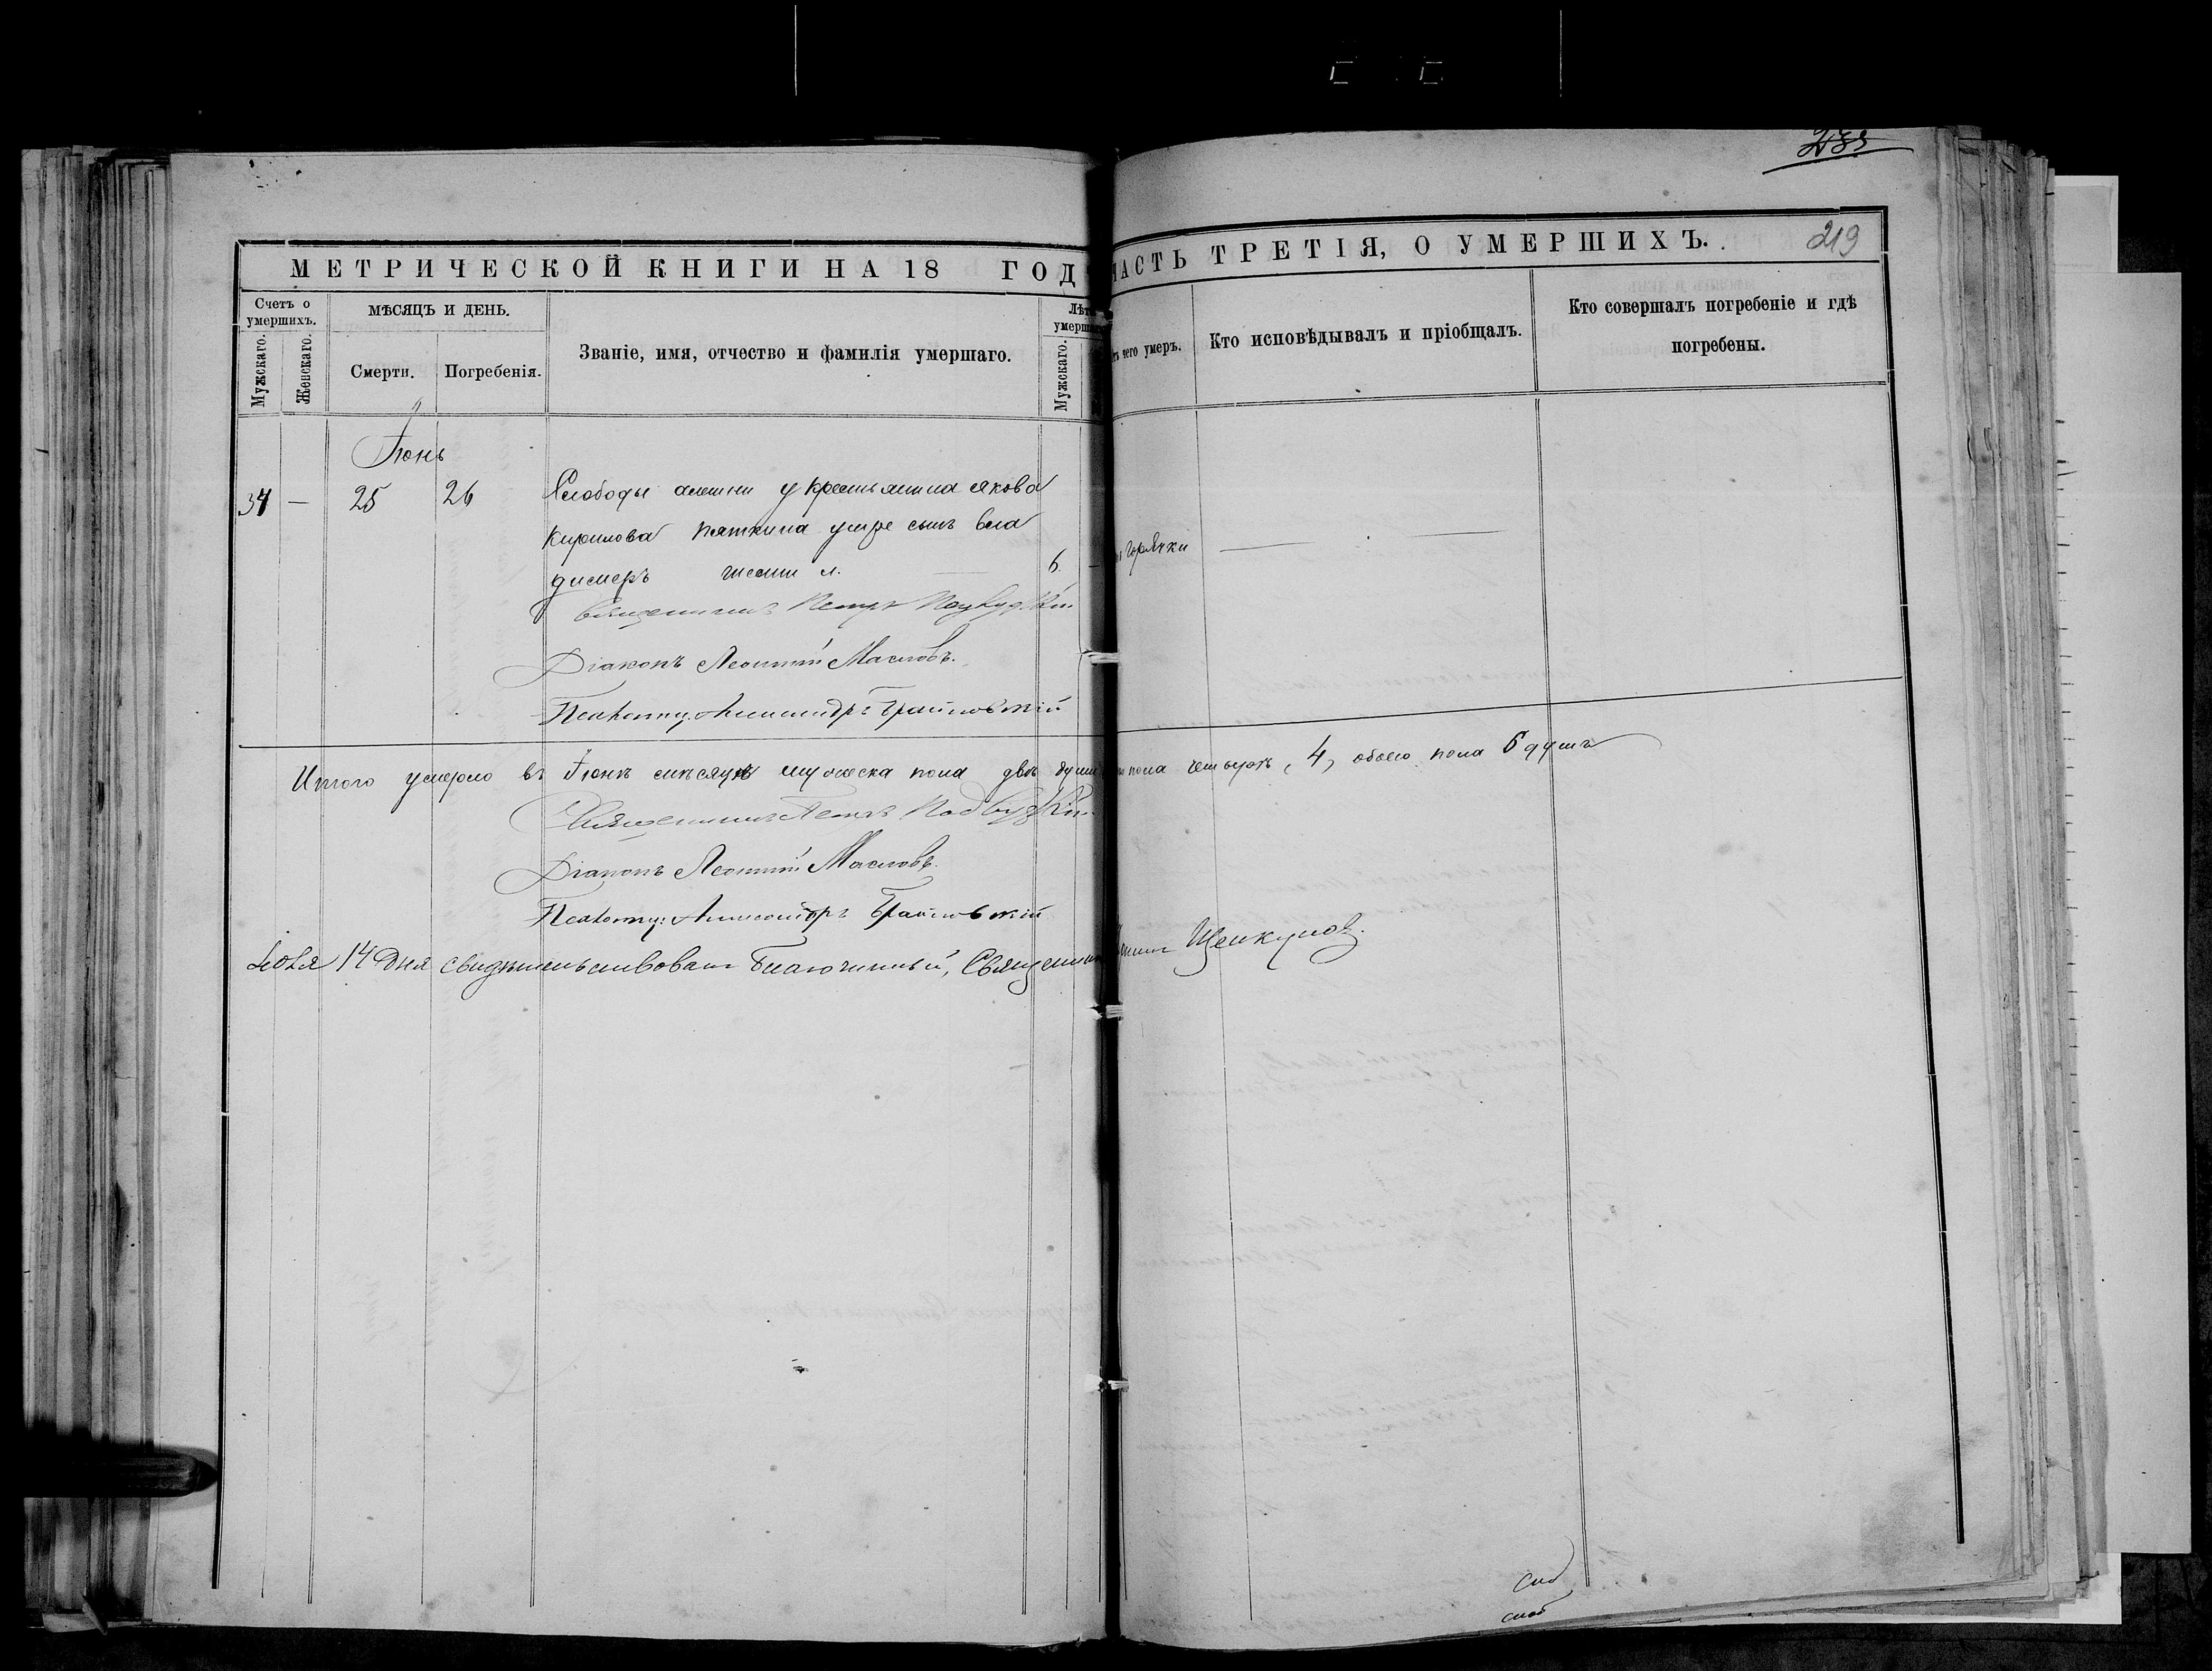 235
219
МЕТРИЧЕСКОЙ КНИГИ НА 18 ГОД
ЧАСТЬ ТРЕТІЯ, О УМЕРШИХЪ.
Счетъ о умершихъ.
Мужскаго.
Женскаго.
МѢСЯЦЪ И ДЕНЬ.
Смерти.
Погребенія.
Званіе, имя, отчество и фамилія умершаго.
Лѣт
умерш
Мужскаго.
чего умеръ.
Кто исповѣдывалъ и пріобщалъ.
Кто совершалъ погребеніе и гдѣ
погребены.
Іюнь
34 — 25 26 Слободы алешни у крестьянина якова
Кирилова пяткина умре сынъ вла
димеръ шести л. 6. горячки
Священникъ Петръ
Діаконъ Леонтій Масловъ.
Псаломщ. Александръ
Итого умерло въ Іюнѣ мѣсяцѣ мужеска пола двѣ души пола четыре, 4, обоего пола 6 душъ
Священникъ Петръ
Діаконъ Леонтій Масловъ.
Псаломщ: Александръ
Іюля 14 дня свидѣтельствовалъ Благочинный, Священник Щелкунов.